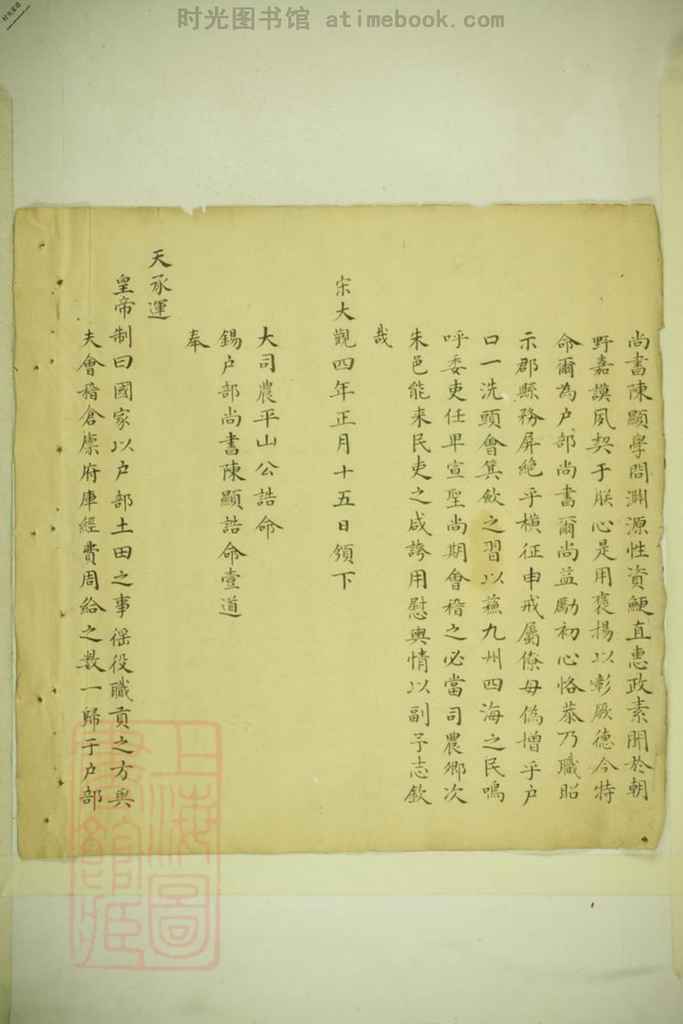 时光图书馆 atimebook.com
尚書陳顯學問淵源性資鯁直惠政素聞於朝
野嘉謨夙契于朕心是用褒揚以彰厥德今特
命爾為户部尚書爾尚益勵初心恪恭乃職昭
示郡縣務屏絶乎橫征申戒屬僚毋偽增乎户
口一洗頭會箕斂之習以蘓九州四海之民嗚
呼委吏任卑宣聖尚期會稽之必當司農卿次
朱邑能来民吏之咸誇用慰輿情以副予志欽
哉
宋大觀四年正月十五日領下
大司農平山公誥命
錫户部尚書陳顯誥命壹道
奉
天承運
皇帝制曰國家以户部土田之事徭役職貢之方與
夫會稽倉廪府庫經費周給之数一歸于户部
上海圖書館藏